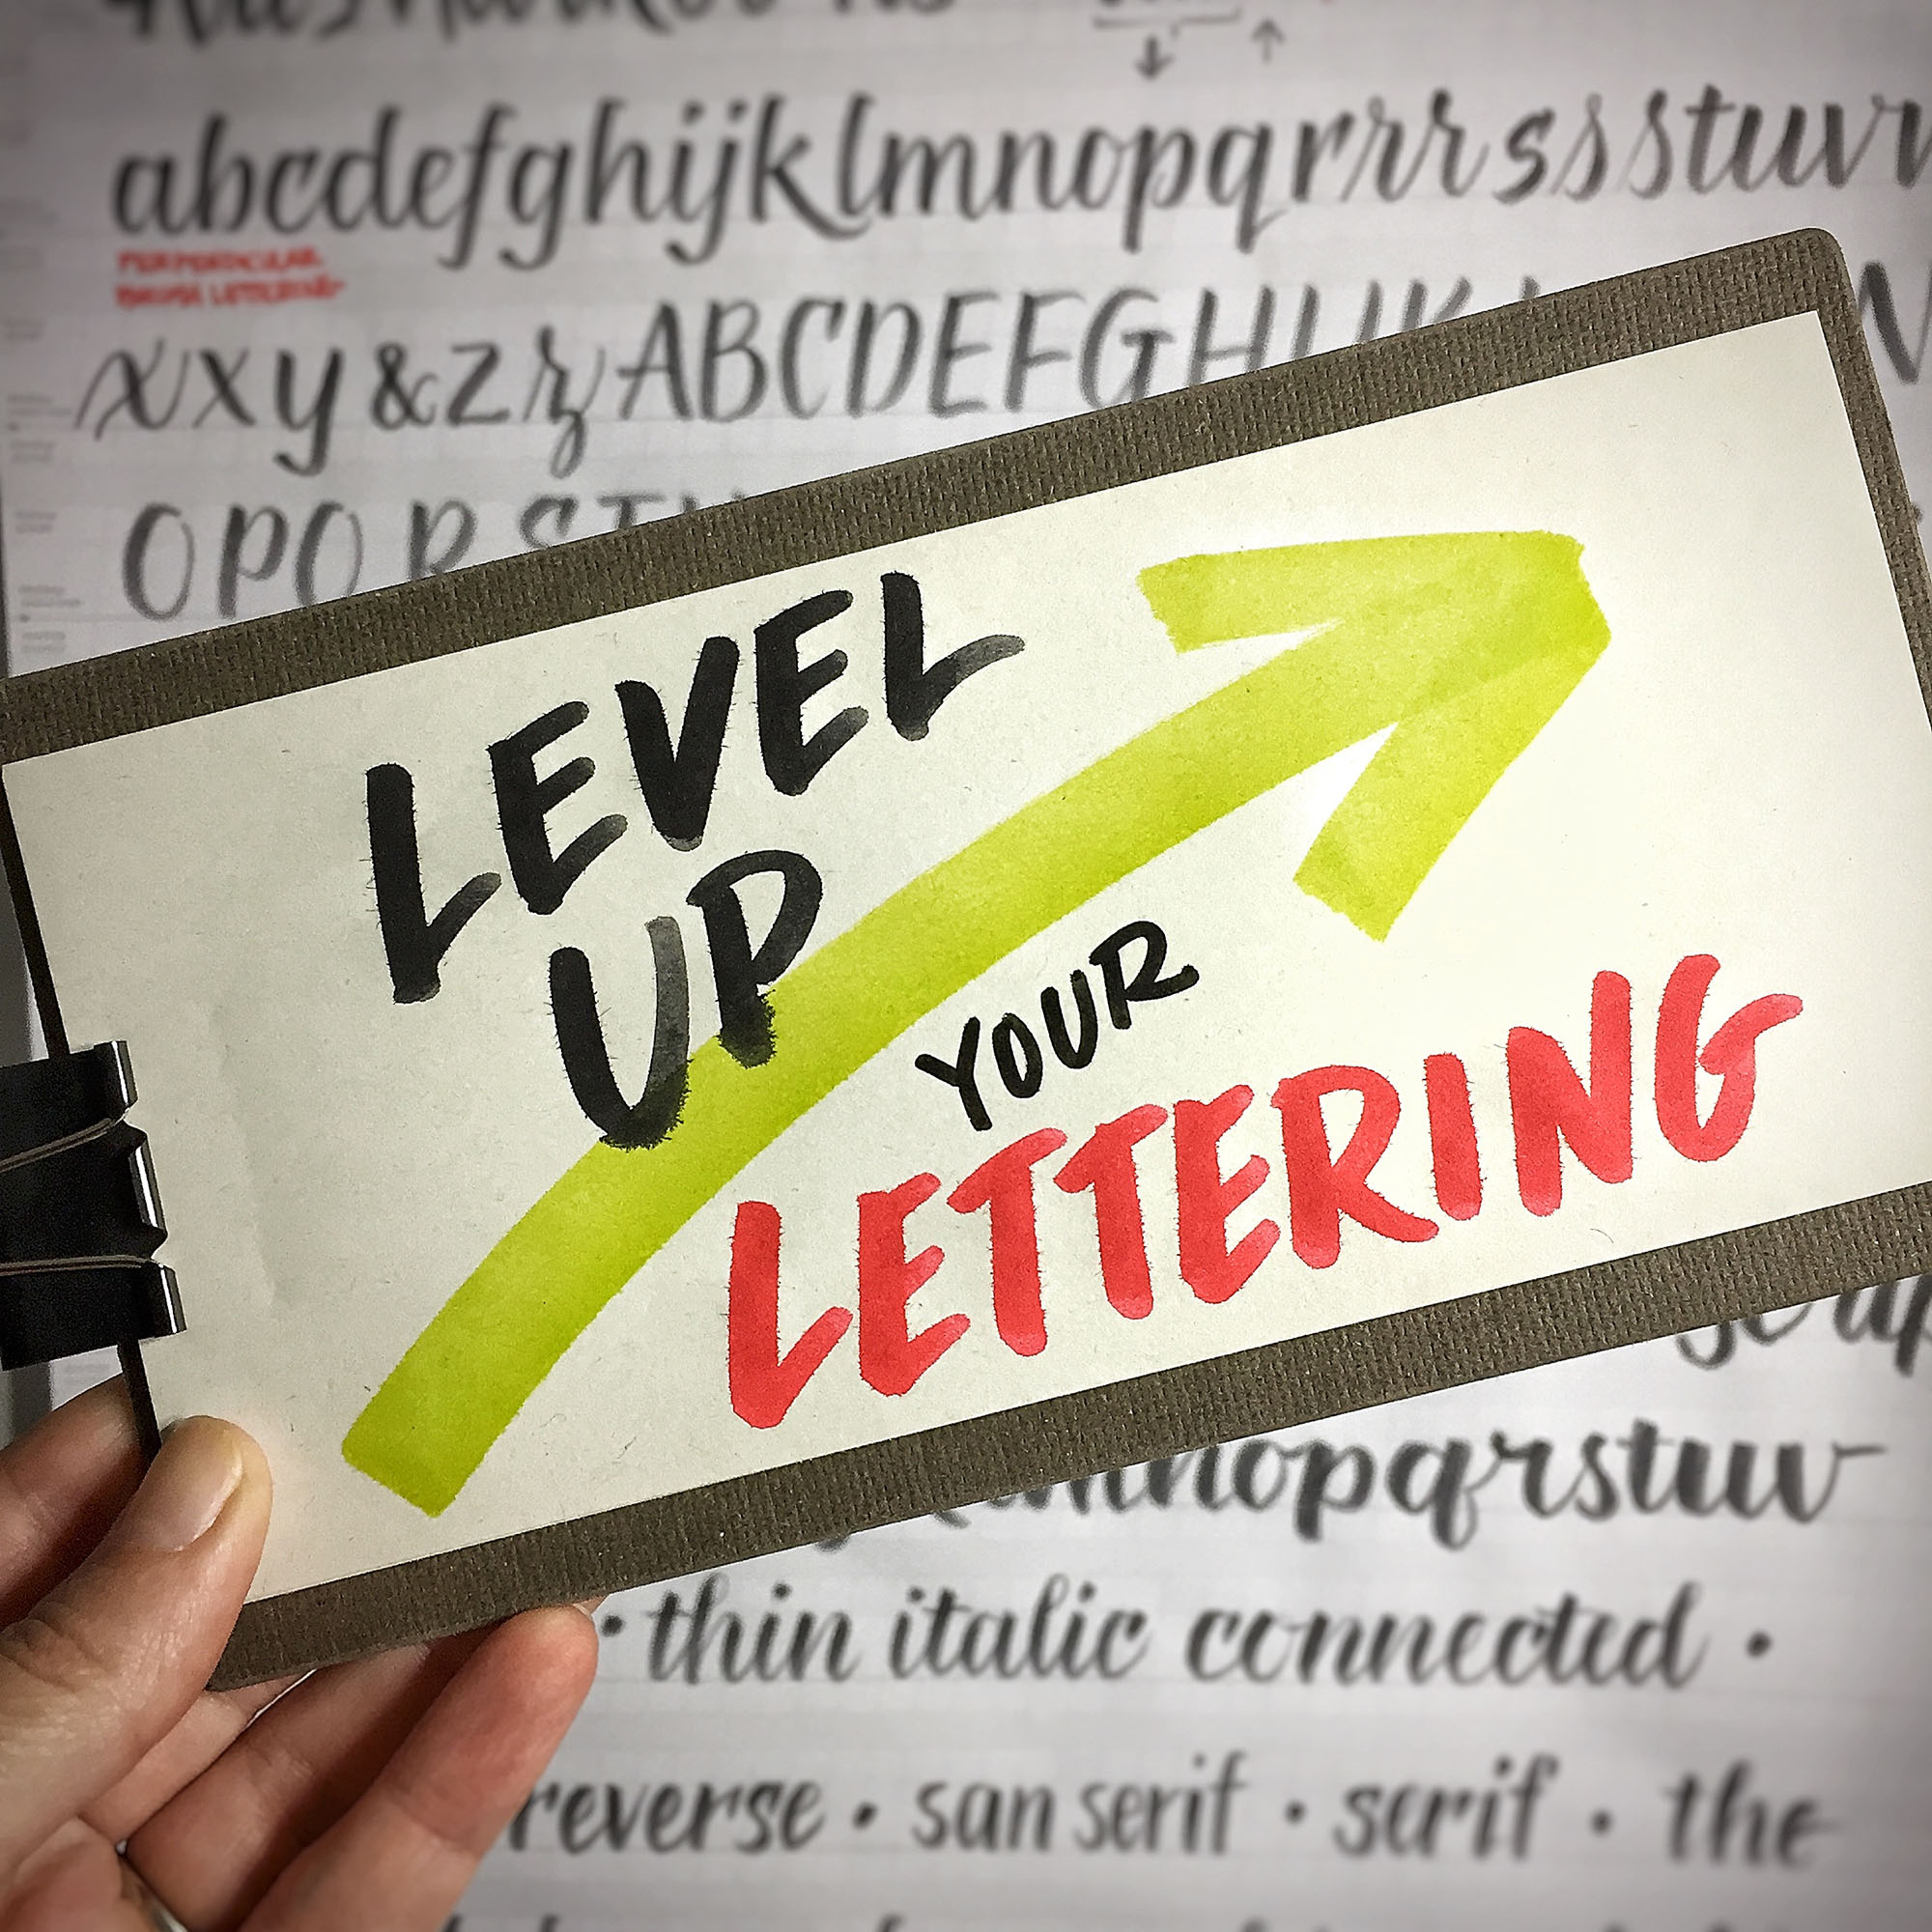 abcdefghijklmnopqrrrssstuv
PERPENDICULAR
BRUSH LETTERING
xxy&zz ABCDEFGHIJK
OPQRST
LEVEL
UP
YOUR
LETTERING
mnopqrstuv
• thin italic connected •
reverse • san serif • serif • the